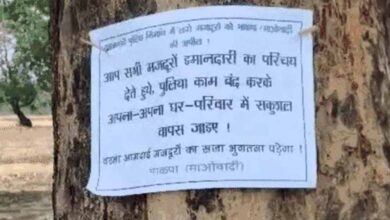 पुलिया निर्माण में लगे मजदूरों को भाकपा (माओवादी)
की अपील !
आप सभी मजदूरों ईमानदारी का परिचय
देते हुये, पुलिया काम बंद करके
अपना-अपना घर-परिवार में सकुशल
वापस जाइए !
वरना आमदाई मजदूरों का सजा भुगतना पड़ेगा !
भाकपा (माओवादी)